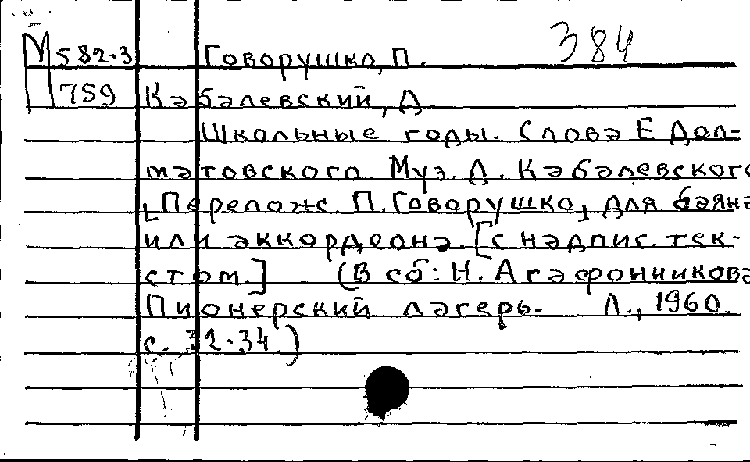 М 582-3 Говорушко, П. 384
759 Кабалевский, Д
Школьные годы. Слова Е Дол-
матовского. Муз. Д. Кабалевского
[Перелож. П. Говорушко, для баяна
или аккордеона. [с надпис. тек-
стом.] (В сб: Н. Агафонникова
Пионерский лагерь. Л., 1960.
с. 32-34.)